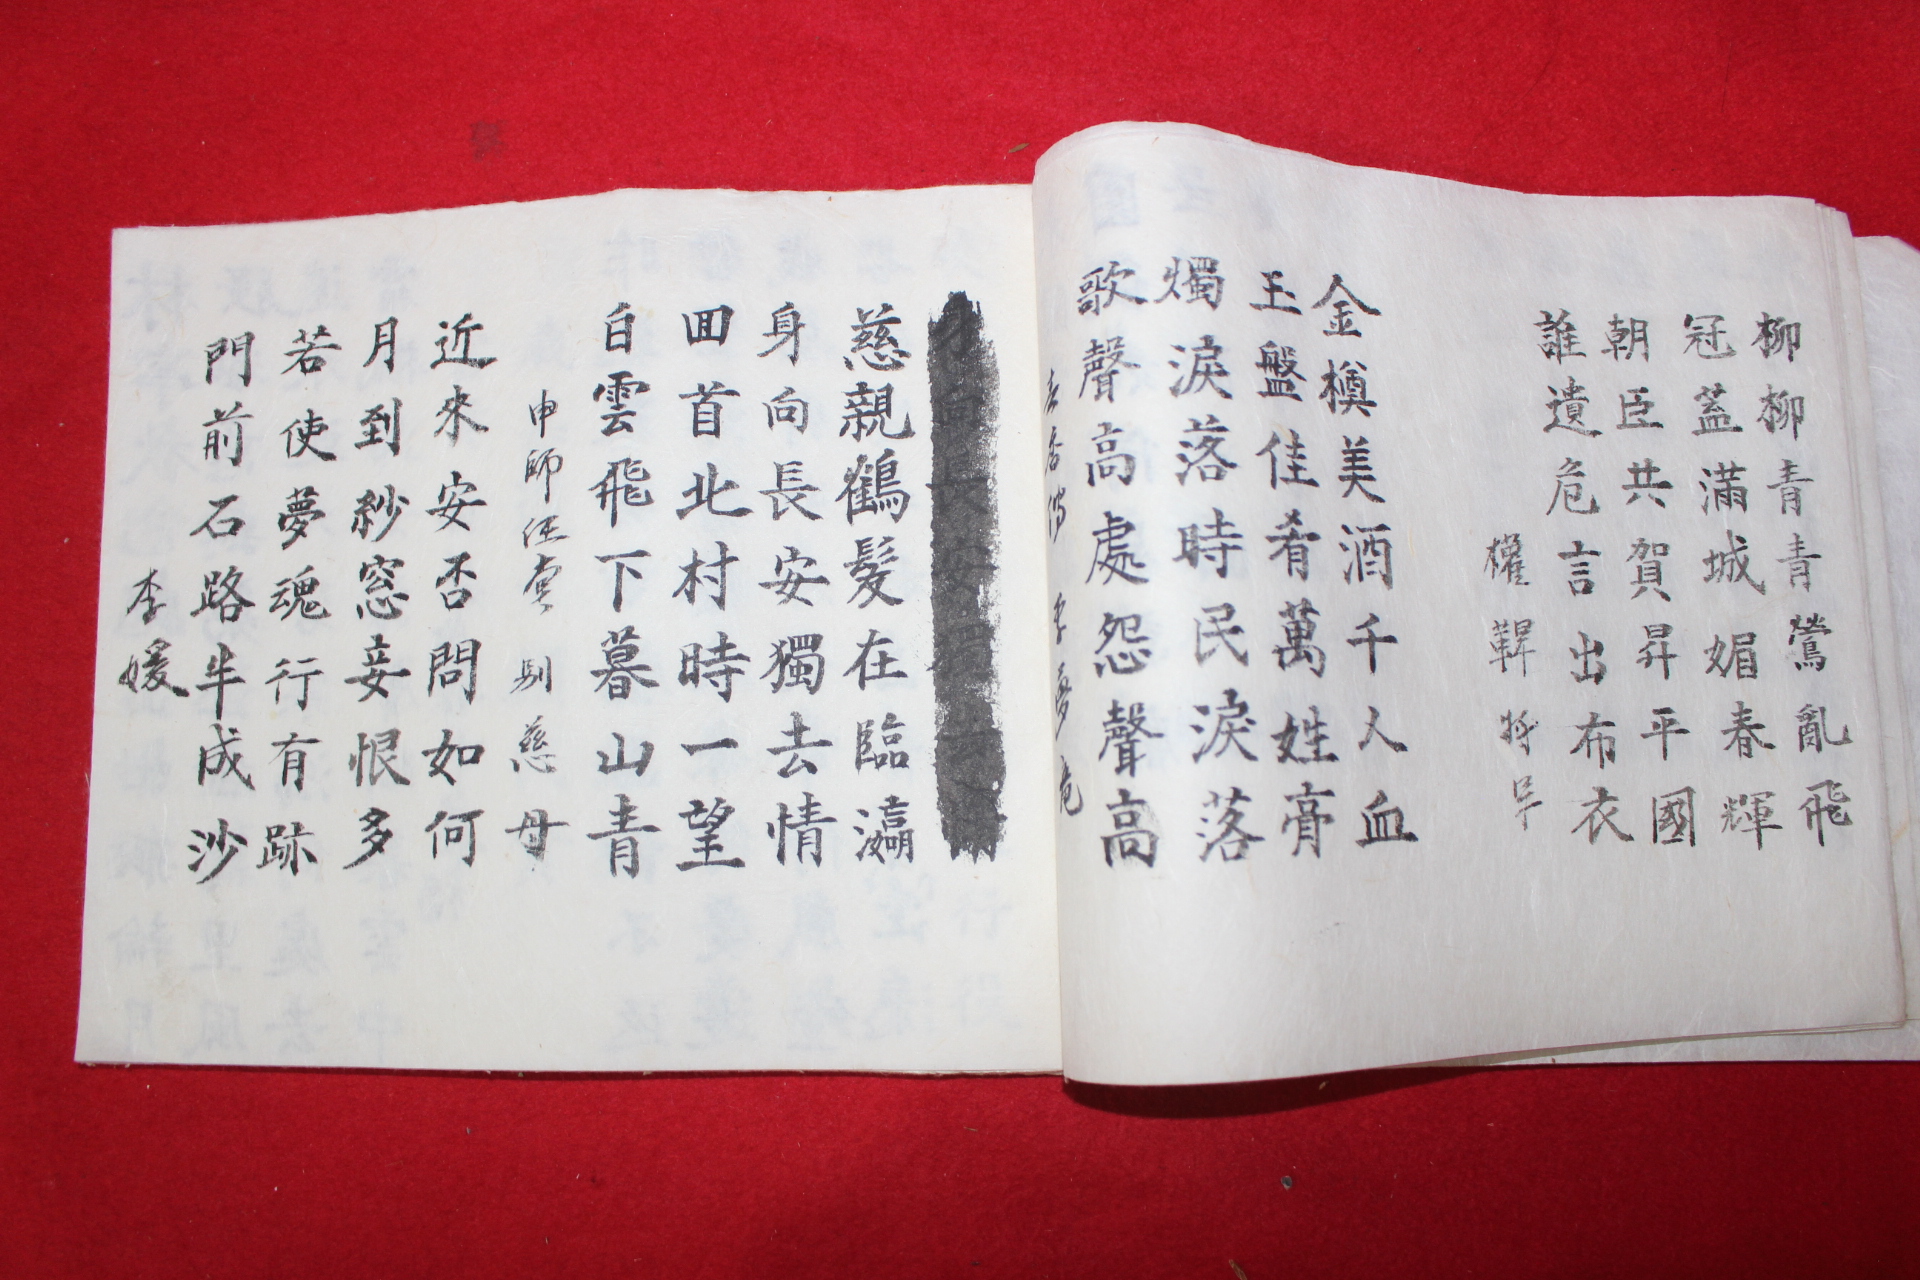 柳柳青青鶯亂飛
冠蓋滿城媚春輝
朝臣共賀昇平國
誰遺危言出布衣
權韠
金樽美酒千人血
玉盤佳肴萬姓膏
燭淚落時民淚落
歌聲高處怨聲高
春香傳 李夢竜
慈親鶴髮在臨瀛
身向長安獨去情
回首北村時一望
白雲飛下暮山青
申師任堂 別慈母
近來安否問如何
月到紗窓妾恨多
若使夢魂行有跡
門前石路半成沙
李媛